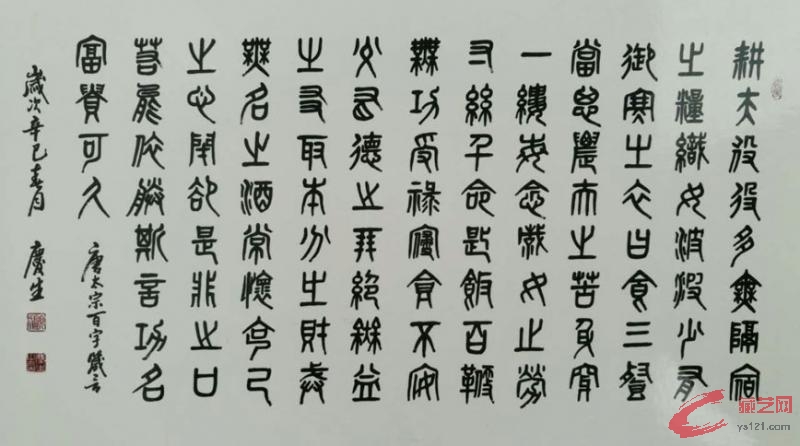 耕夫役役多無隔宿
之糧織女波波少有
御寒之衣日食三餐
當思農夫之苦身穿
一縷每念織女之勞
寸絲千命匙飯百鞭
無功受祿寢食不安
交有德之朋絕無益
之友取本分之財戒
無名之酒常懷克己
之心閉卻是非之口
若能依朕斯言功名
富貴可久
唐太宗百字箴言
歲次辛巳春月 慶生
藏艺网
ys121.com